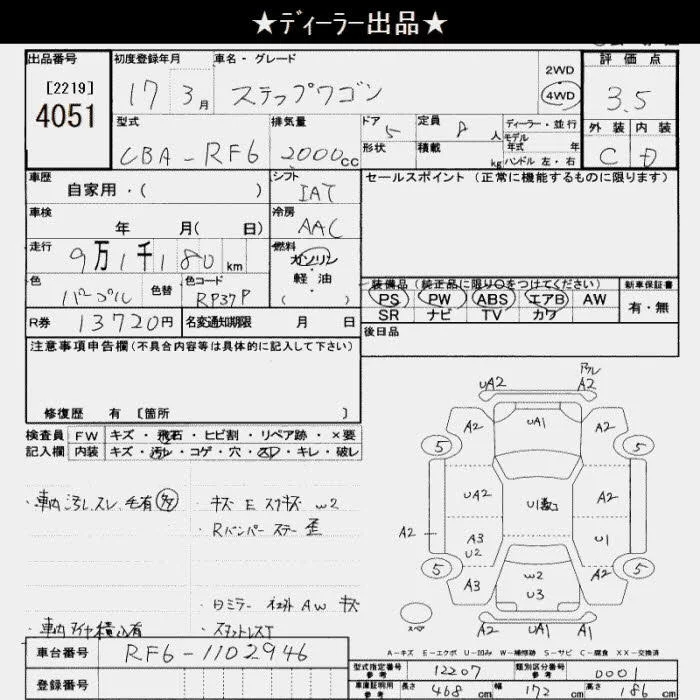 ★ディーラー出品★
出品番号
[2219]
4051
初度登録年月
17 3月
車名・グレード
ステップワゴン
2WD
4WD
評価点
3.5
外装 内装
C D
型式
CBA-RF6
排気量
2000cc
ドア 5
形状
定員 8人
積載 kg
ディーラー・並行
モデル
年式 年
ハンドル 左・右
車歴
自家用・( )
シフト
IAT
セールスポイント (正常に機能するものに限ります)
車検
年 月( 日)
冷房
AAC
走行
9万1千180km
燃料
ガソリン
軽油
( )
色
パープル
色替
色コード
RP37P
装備品 (純正品に限り○をつけてください)
PS PW ABS エアB AW
SR ナビ TV カワ
新車保証書
有・無
R券 13720円
名変通知期限 月 日
後日品
注意事項申告欄(不具合内容等は具体的に記入して下さい)
修復歴 有 〔箇所 〕
検査員
記入欄
FW キズ・飛石・ヒビ割・リペア跡・×要
内装 キズ・汚レ・コゲ・穴・スレ・キレ・破レ
・車内汚レ、スレ、毛有 多
・キズ E スリキズ W2
・Rバンパー ステー 歪
・車内タイヤ積込有
・スタットレスT
UA2
A2
A2 UA1 A2
5 5
UA2 U1数コ A2
A2 A3 U2 U1
5 W2 5
A3 U3 A2
UA2 UA1 A1
スペア
A-キズ E-エクボ U-凹み W-補修跡 S-サビ C-腐食 XX-交換済
車台番号 RF6-1102946
登録番号
型式指定番号
参考
12207
類別区分番号
参考
0001
車庫証明用
参考
長さ 468 cm 幅 172 cm 高さ 186 cm